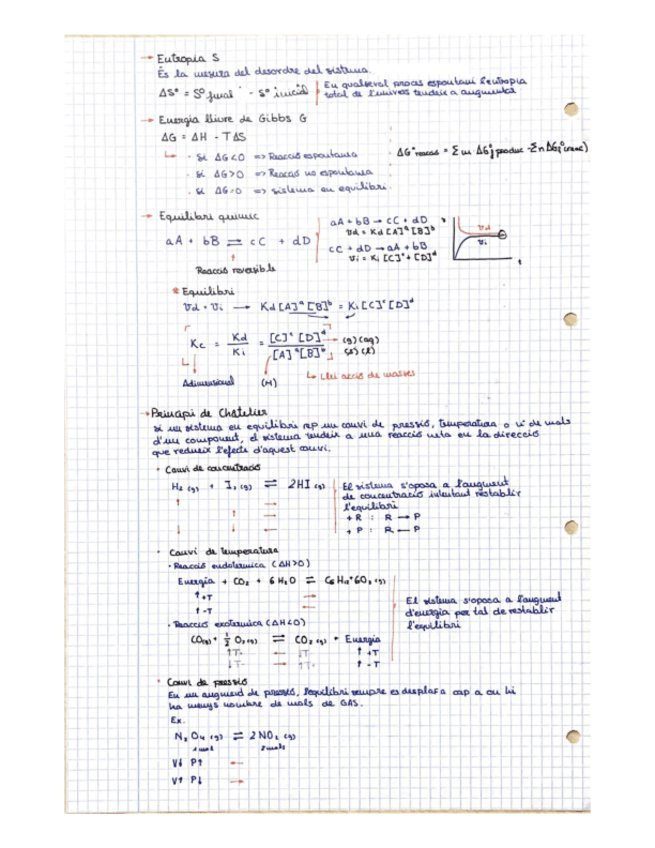 → Entropia S
És la mesura del desordre del sistema.
ΔS° = S° final - S° inicial | En qualsevol procés espontani l'entropia total de l'univers tendeix a augmentar
→ Energia lliure de Gibbs G
ΔG = ΔH - TΔS
· Si ΔG<0 => Reacció espontania
· Si ΔG>0 => Reacció no espontania
· Si ΔG=0 => sistema en equilibri.
→ Equilibri químic
aA + bB ⇌ cC + dD
Reacció reversible
aA + bB → cC + dD
Vd = Kd [A]ᵃ [B]ᵇ
cC + dD → aA + bB
Vi = Ki [C]ᶜ + [D]ᵈ
Vd
Vi
t
* Equilibri
Vd = Vi → Kd [A]ᵃ [B]ᵇ = Ki [C]ᶜ [D]ᵈ
Kc = Kd / Ki = [C]ᶜ [D]ᵈ / [A]ᵃ [B]ᵇ → (g) (aq)
(s) (l)
Adimensional (M) ↳ Llei acció de masses
→ Principi de Chatelier
Si un sistema en equilibri rep un canvi de pressió, temperatura o nº de mols
d'un component, el sistema tendeix a una reacció neta en la direcció
que redueix l'efecte d'aquest canvi.
· Canvi de concentració
H₂ (g) + I₂ (g) ⇌ 2HI (g)
El sistema s'oposa a l'augment
de concentració intentant restablir
l'equilibri
+ R : R → P
+ P : R ← P
· Canvi de temperatura
· Reacció endotermica (ΔH>0)
Energia + CO₂ + 6 H₂O ⇌ C₆H₁₂ 6O₂ (g)
↑ +T →
↑ -T ←
El sistema s'oposa a l'augment
d'energia per tal de restablir
l'equilibri
· Reacció exotermica (ΔH<0)
CO(g) + ½ O₂ (g) ⇌ CO₂ (g) + Energia
↑T. ← ↓T. ↑ +T
↓T. → ↑T. ↑ -T
· Canvi de pressió
En un augment de pressió, l'equilibri sempre es desplaça cap a on hi
ha menys nombre de mols de GAS.
Ex.
N₂O₄ (g) ⇌ 2NO₂ (g)
1 mol 2 mols
V↓ P↑ ←
V↑ P↓ →